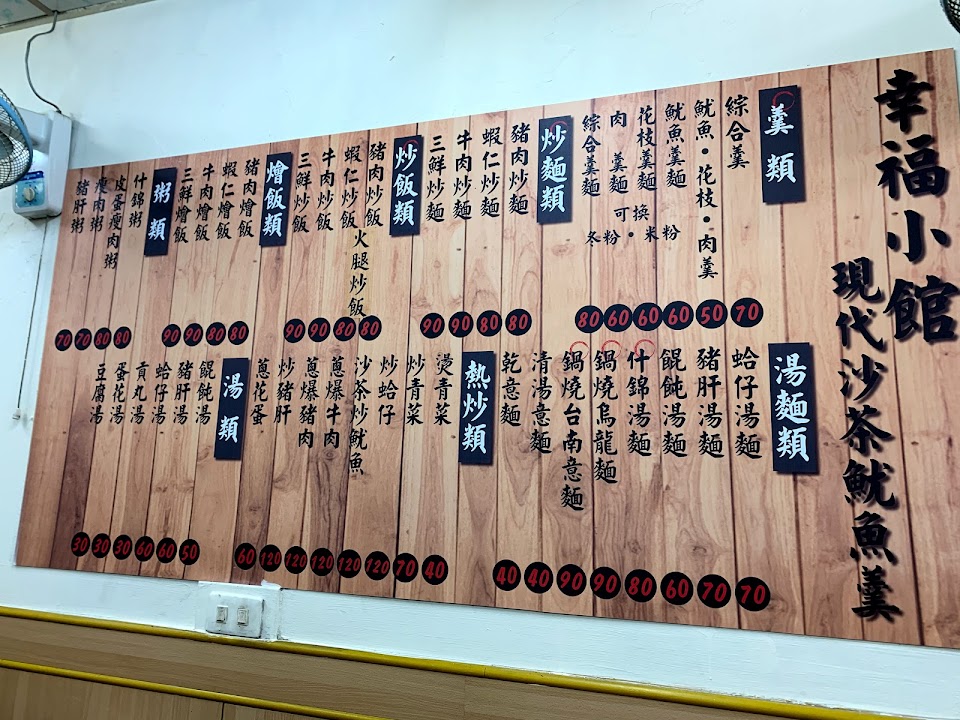 幸福小館
現代沙茶魷魚羹
羹類
綜合羹 70
魷魚・花枝・肉羹 50
魷魚羹麵 60
花枝羹麵 60
肉羹麵 60
綜合羹麵 80
可換
冬粉・米粉
炒麵類
豬肉炒麵 80
蝦仁炒麵 80
牛肉炒麵 90
三鮮炒麵 90
炒飯類
豬肉炒飯 火腿炒飯 80
蝦仁炒飯 80
牛肉炒飯 90
三鮮炒飯 90
燴飯類
豬肉燴飯 80
蝦仁燴飯 80
牛肉燴飯 90
三鮮燴飯 90
粥類
什錦粥 80
皮蛋瘦肉粥 80
瘦肉粥 70
豬肝粥 70
湯麵類
蛤仔湯麵 70
豬肝湯麵 70
餛飩湯麵 60
什錦湯麵 80
鍋燒烏龍麵 90
鍋燒台南意麵 90
清湯意麵 40
乾意麵 40
熱炒類
燙青菜 40
炒青菜 70
炒蛤仔 120
沙茶炒魷魚 120
蔥爆牛肉 120
蔥爆豬肉 120
炒豬肝 120
蔥花蛋 60
湯類
餛飩湯 50
豬肝湯 60
蛤仔湯 60
貢丸湯 30
蛋花湯 30
豆腐湯 30